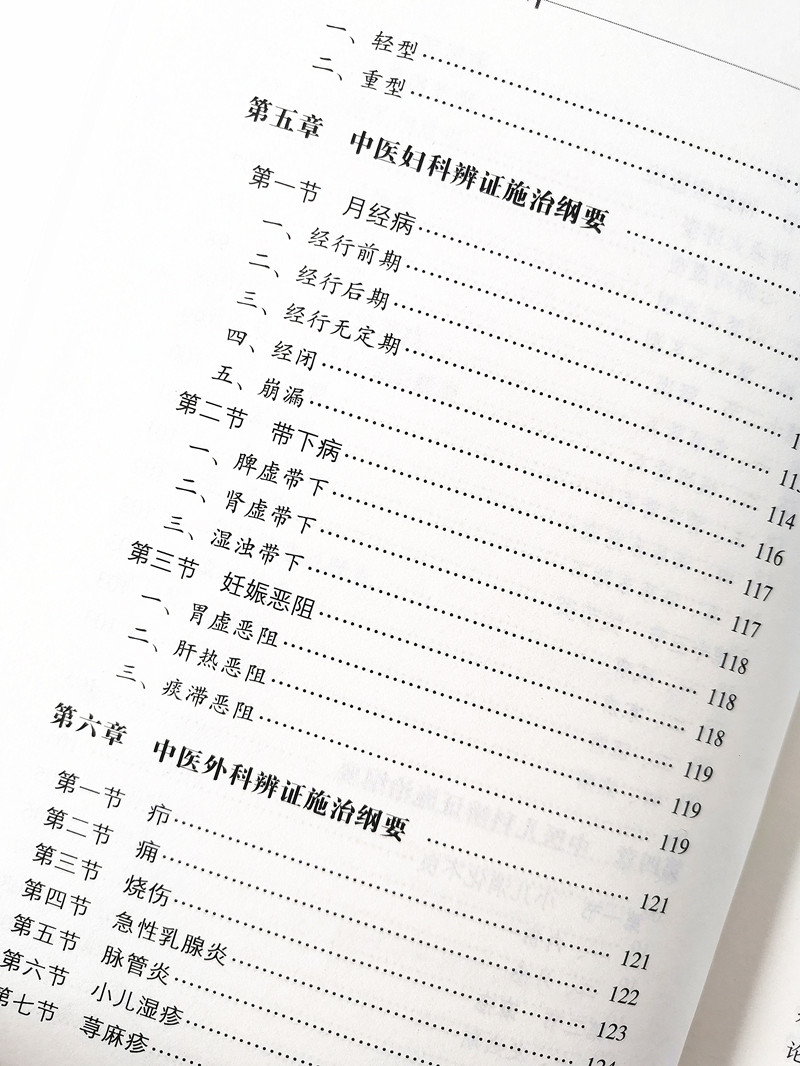 一、轻型
二、重型
第五章 中医妇科辨证施治纲要
第一节 月经病
一、经行前期
二、经行后期
三、经行无定期 113
四、经闭 114
五、崩漏 116
第二节 带下病 117
一、脾虚带下 117
二、肾虚带下 118
三、湿浊带下 118
第三节 妊娠恶阻 118
一、胃虚恶阻 119
二、肝热恶阻 119
三、痰滞恶阻 119
第六章 中医外科辨证施治纲要 121
第一节 疖 121
第二节 痈 122
第三节 烧伤 123
第四节 急性乳腺炎 124
第五节 脉管炎
第六节 小儿湿疹
第七节 荨麻疹